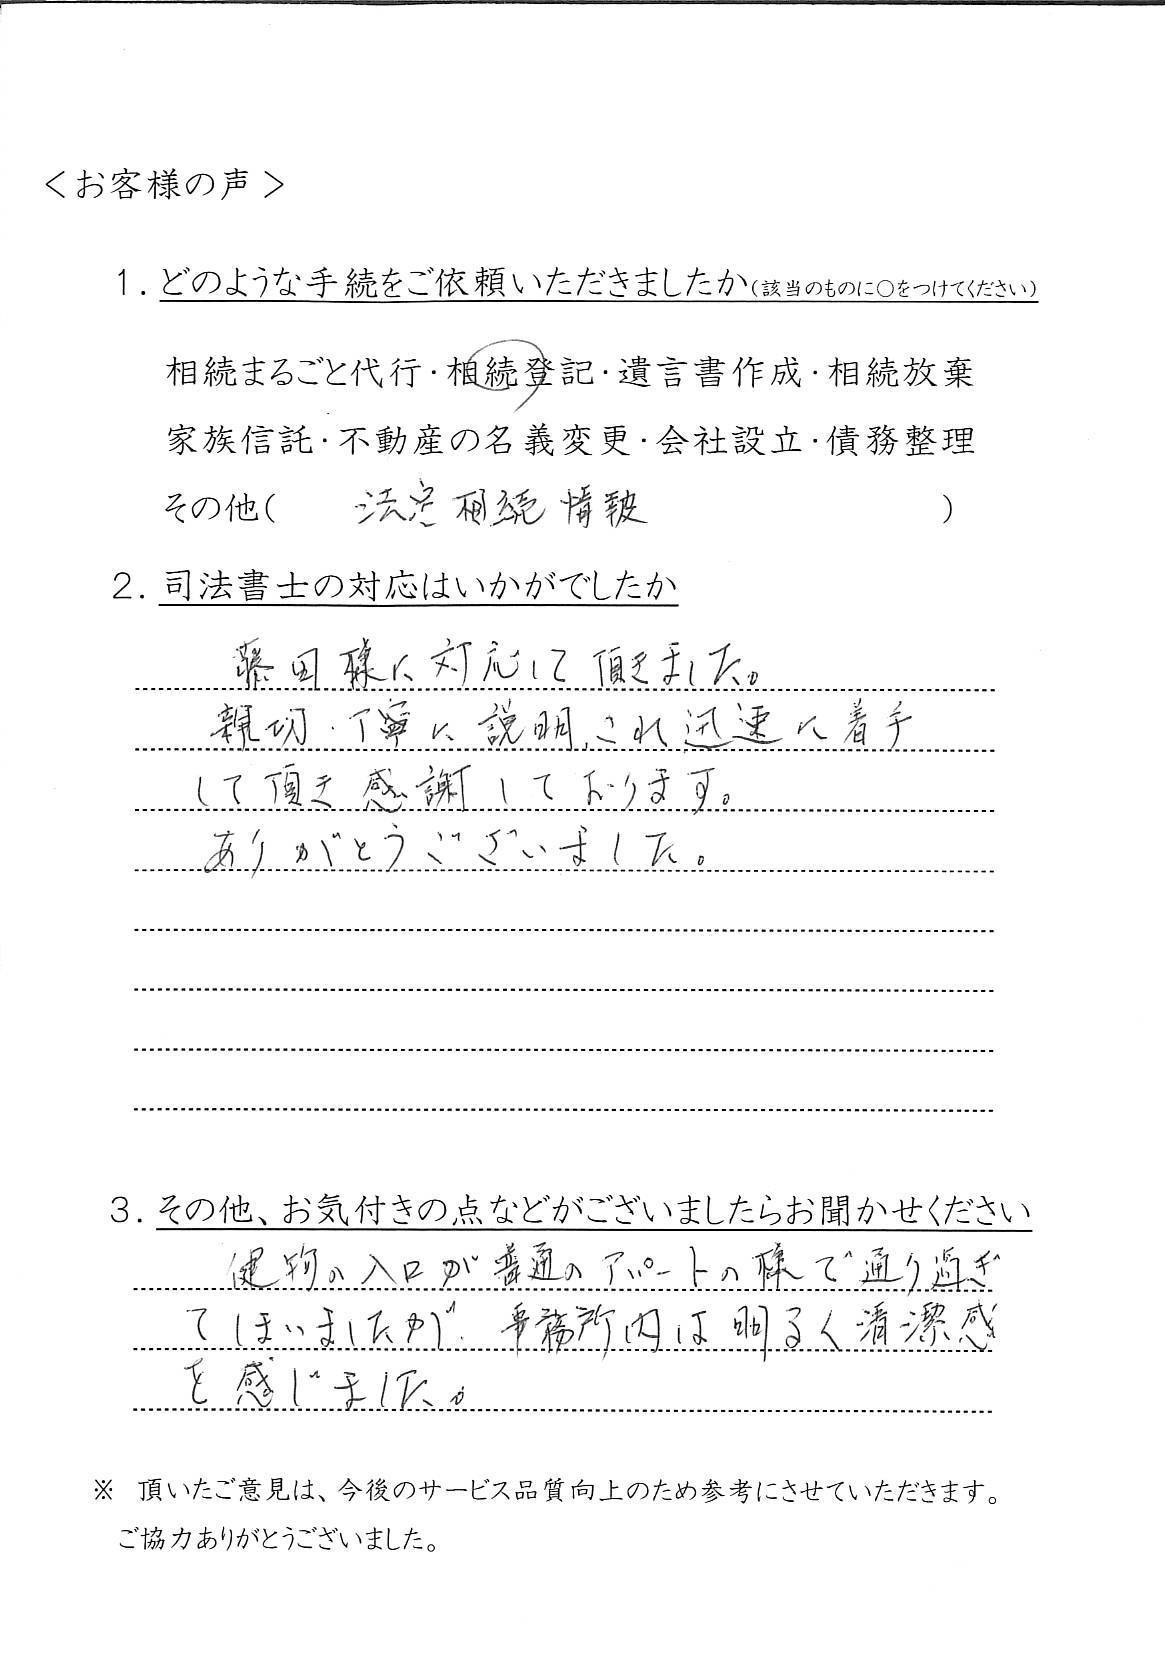 ＜お客様の声＞
1．どのような手続をご依頼いただきましたか（該当のものに○をつけてください）
相続まるごと代行・相続登記・遺言書作成・相続放棄
家族信託・不動産の名義変更・会社設立・債務整理
その他（　法定相続情報　）
2．司法書士の対応はいかがでしたか
藤田様に対応して頂きました。
親切・丁寧に説明され迅速に着手
して頂き感謝しております。
ありがとうございました。
3．その他、お気付きの点などがございましたらお聞かせください
建物の入口が普通のアパートの様で通り過ぎ
てしまいましたが、事務所内は明るく清潔感
を感じました。
※　頂いたご意見は、今後のサービス品質向上のため参考にさせていただきます。
ご協力ありがとうございました。